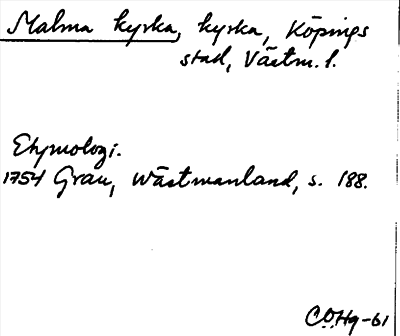 Malma kyrka, kyrka, Köpings
stad, Västm. l.
Etymologi.
1754 Grau, Wästmanland, s. 188.
COHg-61